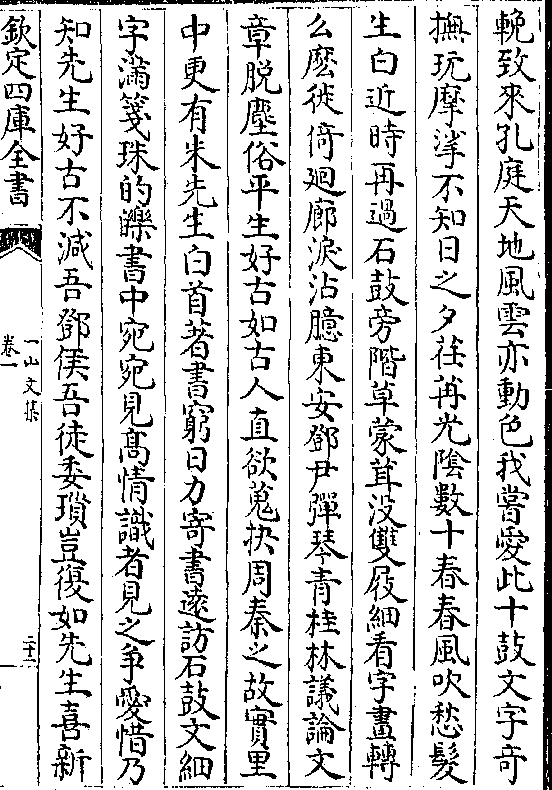 輓致來孔庭天地風雲亦動色我嘗愛此十鼓文字奇
撫玩摩挲不知日之夕荏苒光陰數十春春風吹愁髮
生白近時再過石鼓旁階草蒙茸没雙屐細看字畫轉
么麽徙倚廻廊淚沾臆東安鄧尹彈琴青桂林議論文
章脱塵俗平生好古如古人直欲蒐抉周秦之故實里
中更有朱先生白首著書窮日力寄書遠訪石鼓文細
字滿箋珠的皪書中宛宛見髙情識者見之争愛惜乃
知先生好古不減吾鄧侯吾徒委瑣豈復如先生喜新
欽定四庫全書
一山文集
卷一
二十二